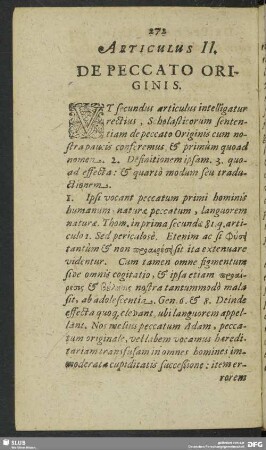 272
ARTICULUS II.
DE PECCATO ORI-
GINIS.
VT secundus articulus intelligatur
rectius, Scholasticorum senten-
tiam de peccato Originis cum no-
stra paucis conferemus, & primùm quoad
nomen. 2. Definitionem ipsam. 3. quo-
ad effecta: & quartò modum seu tradu-
ctionem.
1. Ipsi vocant peccatum primi hominis
humanum naturæ peccatum, languorem
naturæ. Thom. in prima secundæ 81. q. arti-
culo 1. Sed periculosè. Etenim ac si
tantùm & non sit ita extenuare
videntur. Cum tamen omne figmentum
sive omnis cogitatio, & ipsa etiam
& nostra tantummodo mala
sit, ab adolescentia. Gen. 6. & 8. Deinde
effecta quoq, elevant, ubi languorem appel-
lant. Nos melius peccatum Adam, pecca-
tum originale, vel labem vocamus heredi-
tariam transfusam in omnes homines im-
moderata cupiditatis successione: item er-
rorem
SLUB